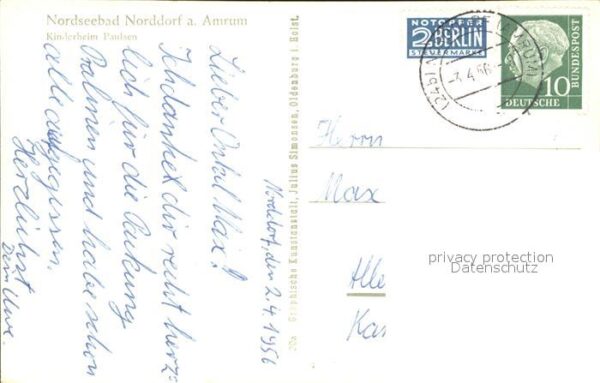 Nordseebad Norddorf a. Amrum
Kinderheim Paulsen
Norddorf, den 2.4.1956
Lieber Onkel Max!
Ich danke dir recht herz=
lich für die Packung
Pralinen und habe schon
alle aufgegessen.
Herzlichst
dein Uwe.
20a Graphische Kunstanstalt, Julius Simonsen, Oldenburg i. Holst.
NOTOPFER
2 BERLIN
STEUERMARKE
(24b)
-3.4.56
10
DEUTSCHE
BUNDESPOST
Herrn
Max
Alle
Kas
privacy protection
Datenschutz